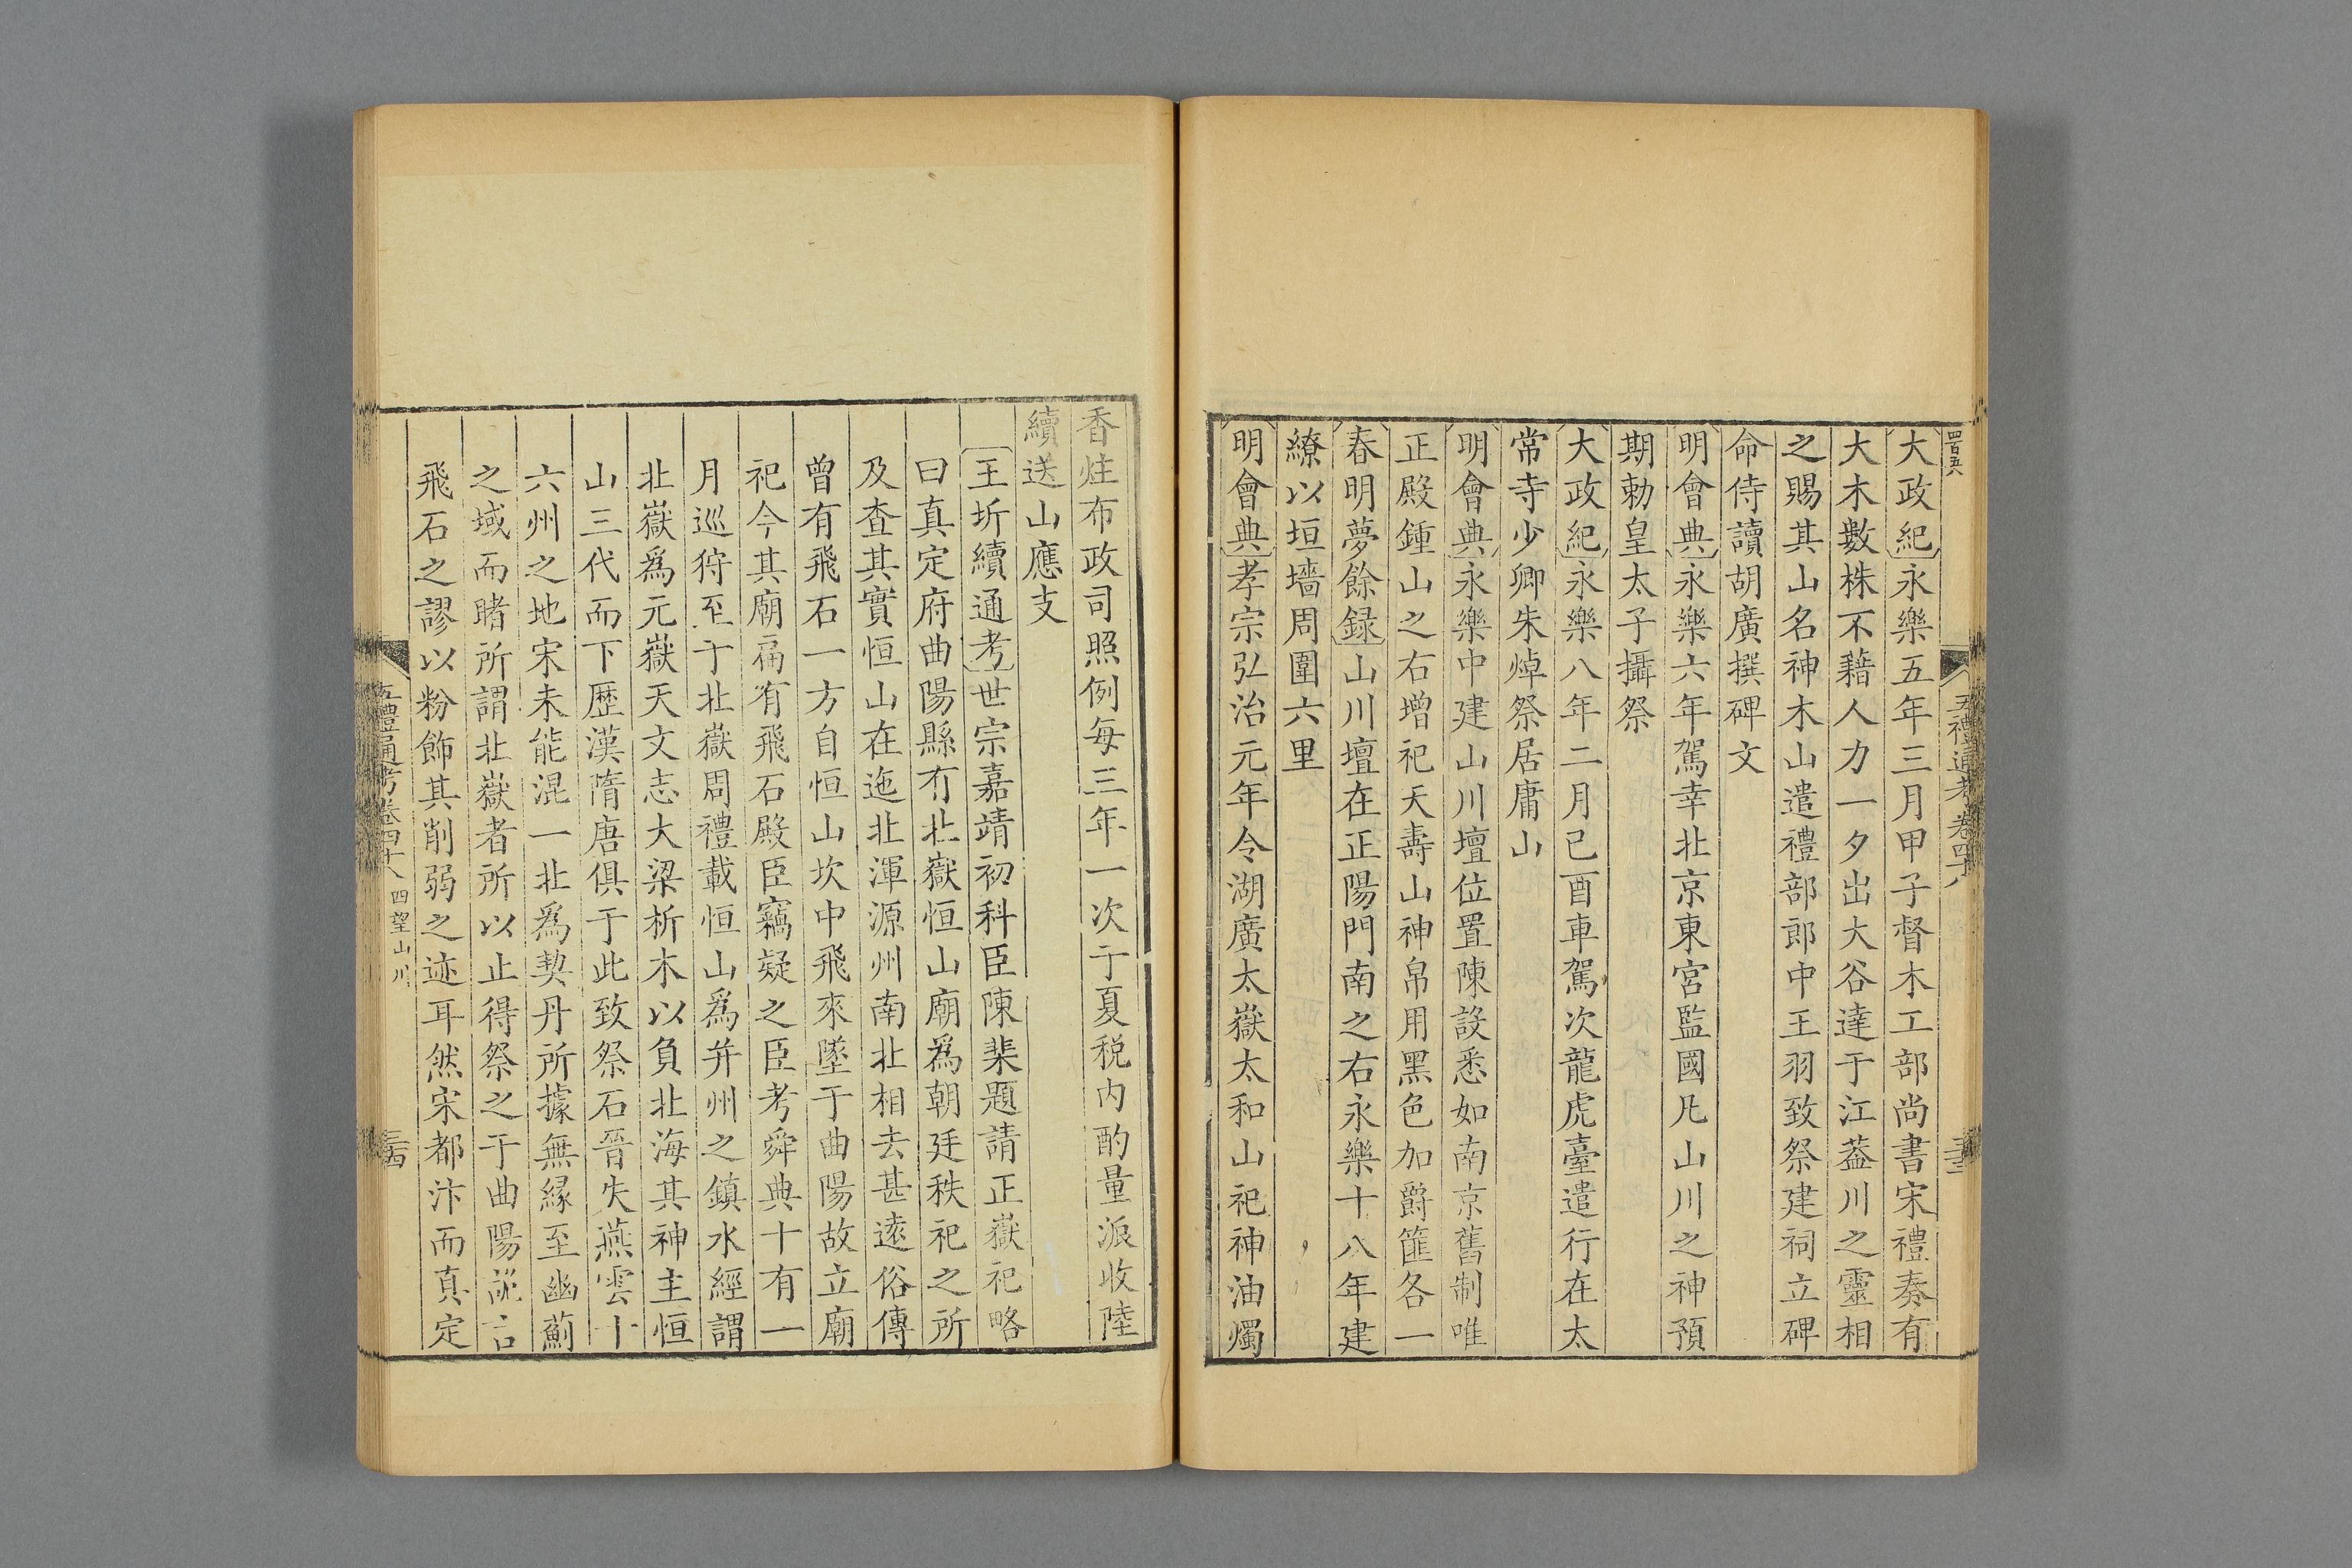 大政紀永樂五年三月甲子督木工部尚書宋禮奏有
大木數株不藉人力一夕出大谷達于江葢川之靈相
之賜其山名神木山遣禮部郎中王羽致祭建祠立碑
命侍讀胡廣撰碑文
明會典永樂六年駕幸北京東宮監國凡山川之神預
期勅皇太子攝祭
大政紀永樂八年二月己酉車駕次龍虎臺遣行在太
常寺少卿朱焯祭居庸山
明會典永樂中建山川壇位置陳設悉如南京舊制唯
正殿鍾山之右增祀天壽山神帛用黑色加爵篚各一
春明夢餘録山川壇在正陽門南之右永樂十八年建
繚以垣墻周圍六里
明會典孝宗弘治元年令湖廣太嶽太和山祀神油燭
香炷布政司照例每三年一次于夏税内酌量派收陸
續送山應支
王圻續通考世宗嘉靖初科臣陳棐題請正嶽祀略
曰真定府曲陽縣有北嶽恒山廟爲朝廷秩祀之所
及查其實恒山在迤北渾源州南北相去甚遠俗傳
曾有飛石一方自恒山坎中飛來墜于曲陽故立廟
祀今其廟扁有飛石殿臣竊疑之臣考舜典十有一
月巡狩至于北嶽周禮載恒山爲并州之鎮水經謂
北嶽爲元嶽天文志大梁析木以負北海其神主恒
山三代而下歴漢隋唐俱于此致祭石晉失燕雲十
六州之地宋未能混一北爲契丹所據無緣至幽薊
之域而睹所謂北嶽者所以止得祭之于曲陽詭言
飛石之謬以粉飾其削弱之迹耳然宋都汴而真定
五禮通考卷四十八 四望山川